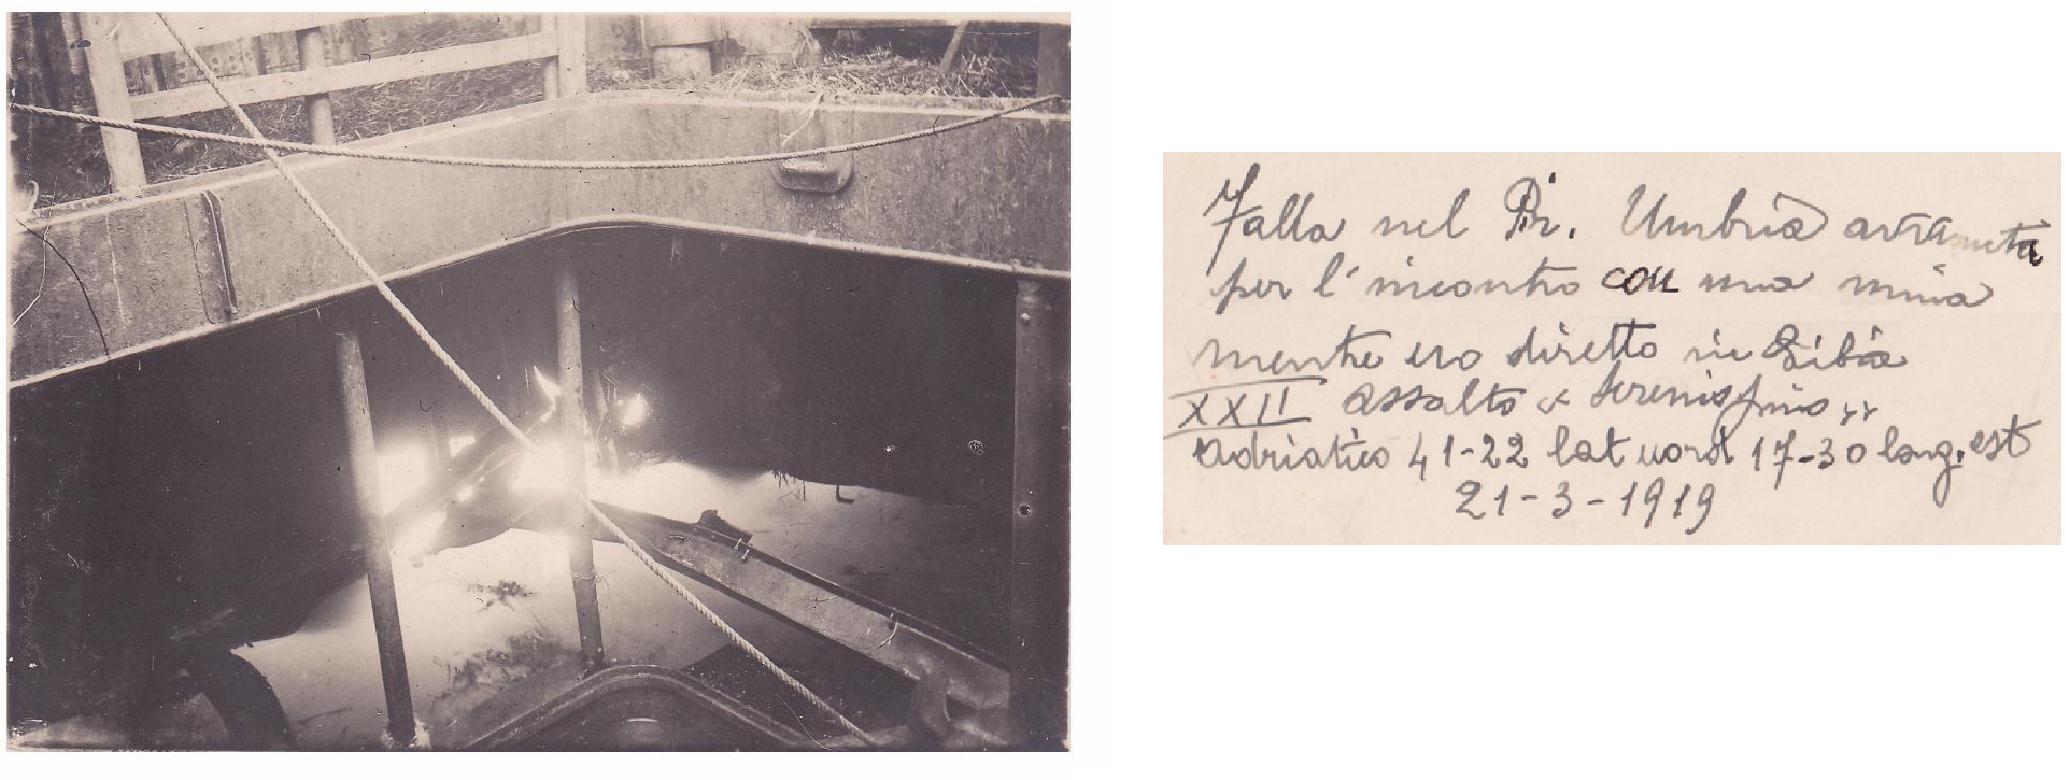 Falla nel Pir. Umbria avvenuta
per l'incontro con una mina
mentre ero diretto in Libia
XXII assalto « Serenissimo »
Adriatico 41-22 lat nord 17-30 long. est
21-3-1919